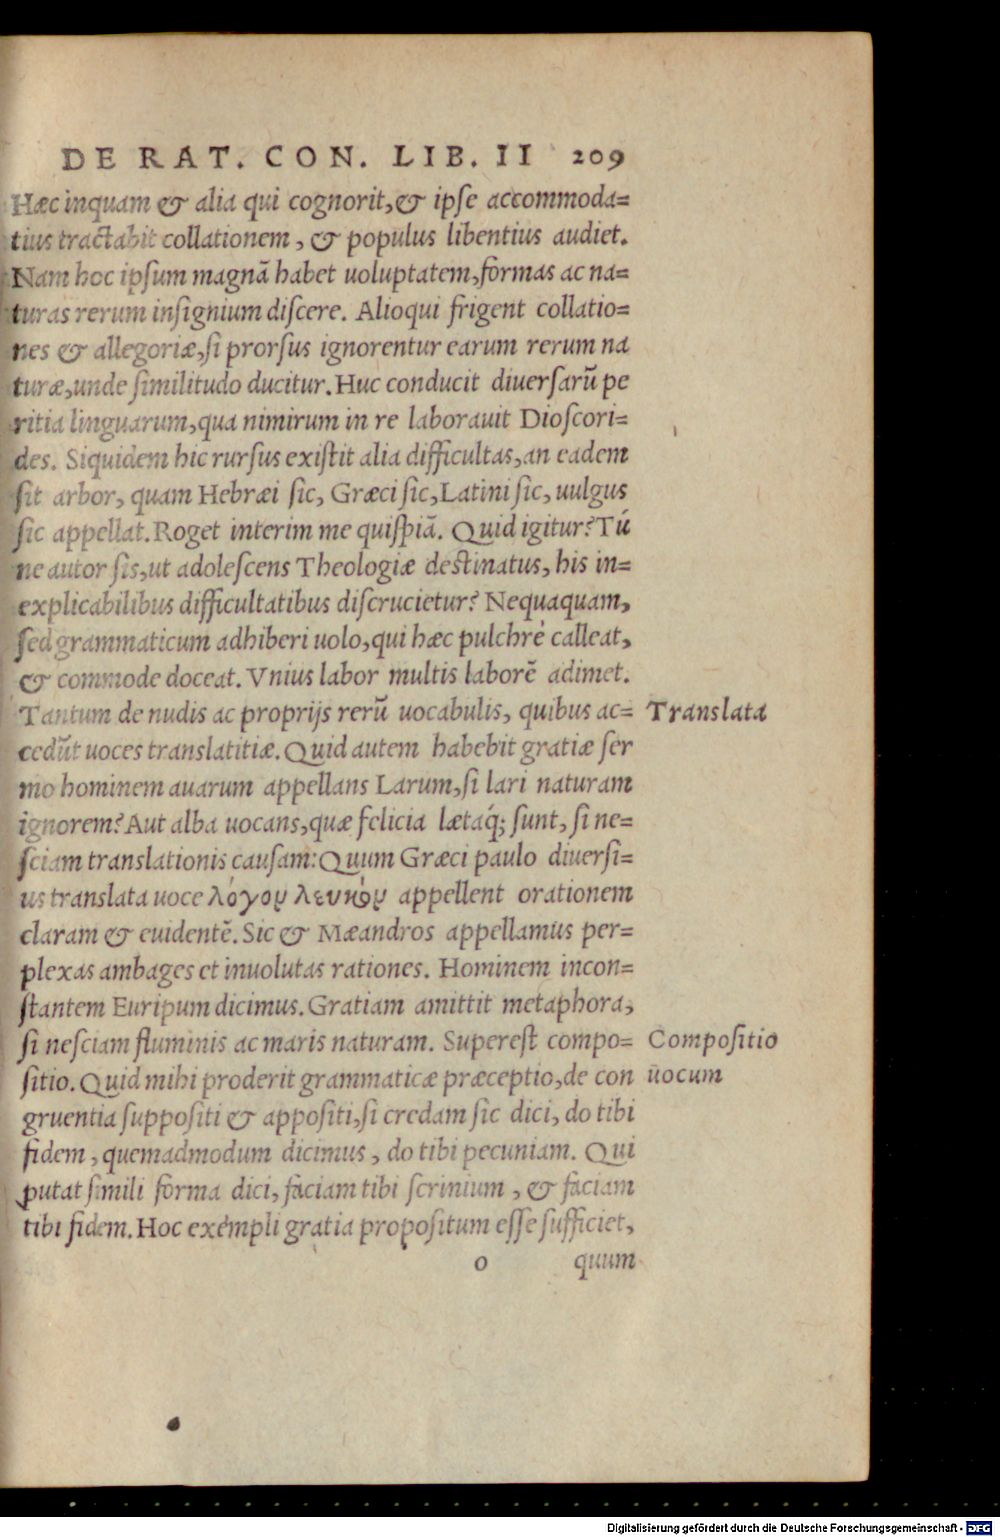 DE RAT. CON. LIB. II 209
Hæc inquam & alia qui cognorit,& ipſe accommoda=
tius tractabit collationem, & populus libentius audiet.
Nam hoc ipſum magnã habet uoluptatem,formas ac na=
turas rerum inſignium diſcere. Alioqui frigent collatio=
nes & allegoriæ,ſi prorſus ignorentur earum rerum na
turæ,unde ſimilitudo ducitur. Huc conducit diuerſarũ pe
ritia linguarum,qua nimirum in re laborauit Dioſcori=
des. Siquidem hic rurſus exiſtit alia difficultas,an eadem
ſit arbor, quam Hebræi ſic, Græci ſic, Latini ſic, uulgus
ſic appellat. Roget interim me quiſpiã. Quid igitur? Tú
ne autor ſis,ut adoleſcens Theologiæ deſtinatus, his in=
explicabilibus difficultatibus diſcrucietur? Nequaquam,
ſed grammaticum adhiberi uolo,qui hæc pulchrè calleat,
& commode doceat. Vnius labor multis laborẽ adimet.
Tantum de nudis ac proprijs rerũ uocabulis, quibus ac= Translata
cedũt uoces translatitiæ. Quid autem habebit gratiæ ſer
mo hominem auarum appellans Larum,ſi lari naturam
ignorem? Aut alba uocans,quæ felicia lætaq́; ſunt, ſi ne=
ſciam translationis cauſam: Quum Græci paulo diuerſi=
us translata uoce λόγον λευκὸν appellent orationem
claram & euidentẽ. Sic & Mæandros appellamus per=
plexas ambages et inuolutas rationes. Hominem incon=
ſtantem Euripum dicimus. Gratiam amittit metaphora,
ſi neſciam fluminis ac maris naturam. Supereſt compo= Compoſitio
ſitio. Quid mihi proderit grammaticæ præceptio,de con uocum
gruentia ſuppoſiti & appoſiti,ſi credam ſic dici, do tibi
fidem, quemadmodum dicimus, do tibi pecuniam. Qui
putat ſimili forma dici, faciam tibi ſcrinium, & faciam
tibi fidem. Hoc exempli gratia propoſitum eſſe ſufficiet,
o quum
Digitalisierung gefördert durch die Deutsche Forschungsgemeinschaft - DFG